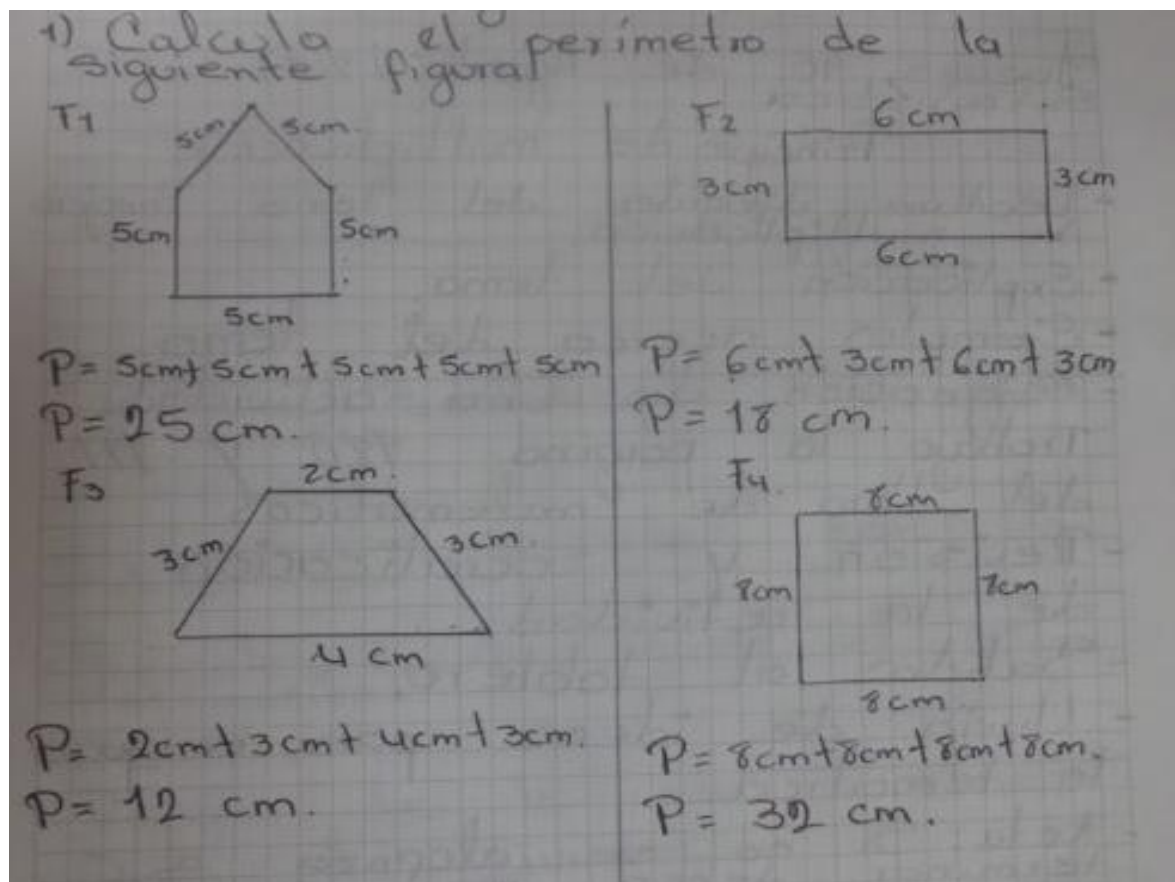 1) Calcula el perimetro de la
siguiente figura
F1
5cm 5cm.
5cm 5cm
5cm
P= 5cm+ 5cm + 5cm + 5cm+ 5cm
P= 25 cm.
F2
6 cm
3cm 3cm
6cm
P= 6cm+ 3cm + 6cm + 3cm
P= 18 cm.
F3
2cm.
3cm 3cm.
4 cm
P= 2cm+ 3cm+ 4cm+ 3cm.
P= 12 cm.
F4.
8cm
8cm 8cm
8cm
P= 8cm+8cm+8cm+8cm.
P= 32 cm.